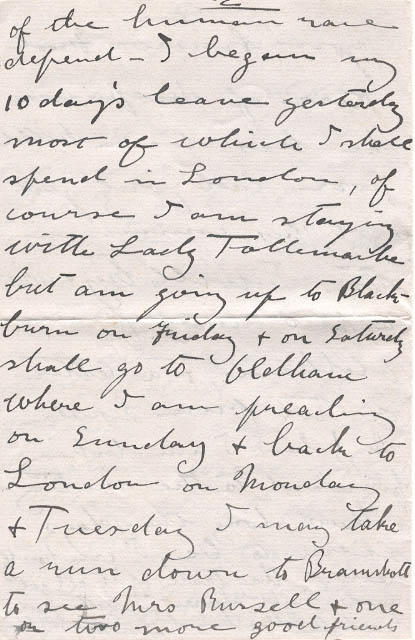 2
of the human race
depend - I began my
10 day's leave yesterday
most of which I shall
spend in London, of
course I am staying
with Lady Tollemache
but am going up to Black-
burn on Friday & on Saturday
shall go to Oldham
where I am preaching
on Sunday & back to
London on Monday
& Tuesday I may take
a run down to Bramshott
to see Mrs Bursell & one
or two more good friends